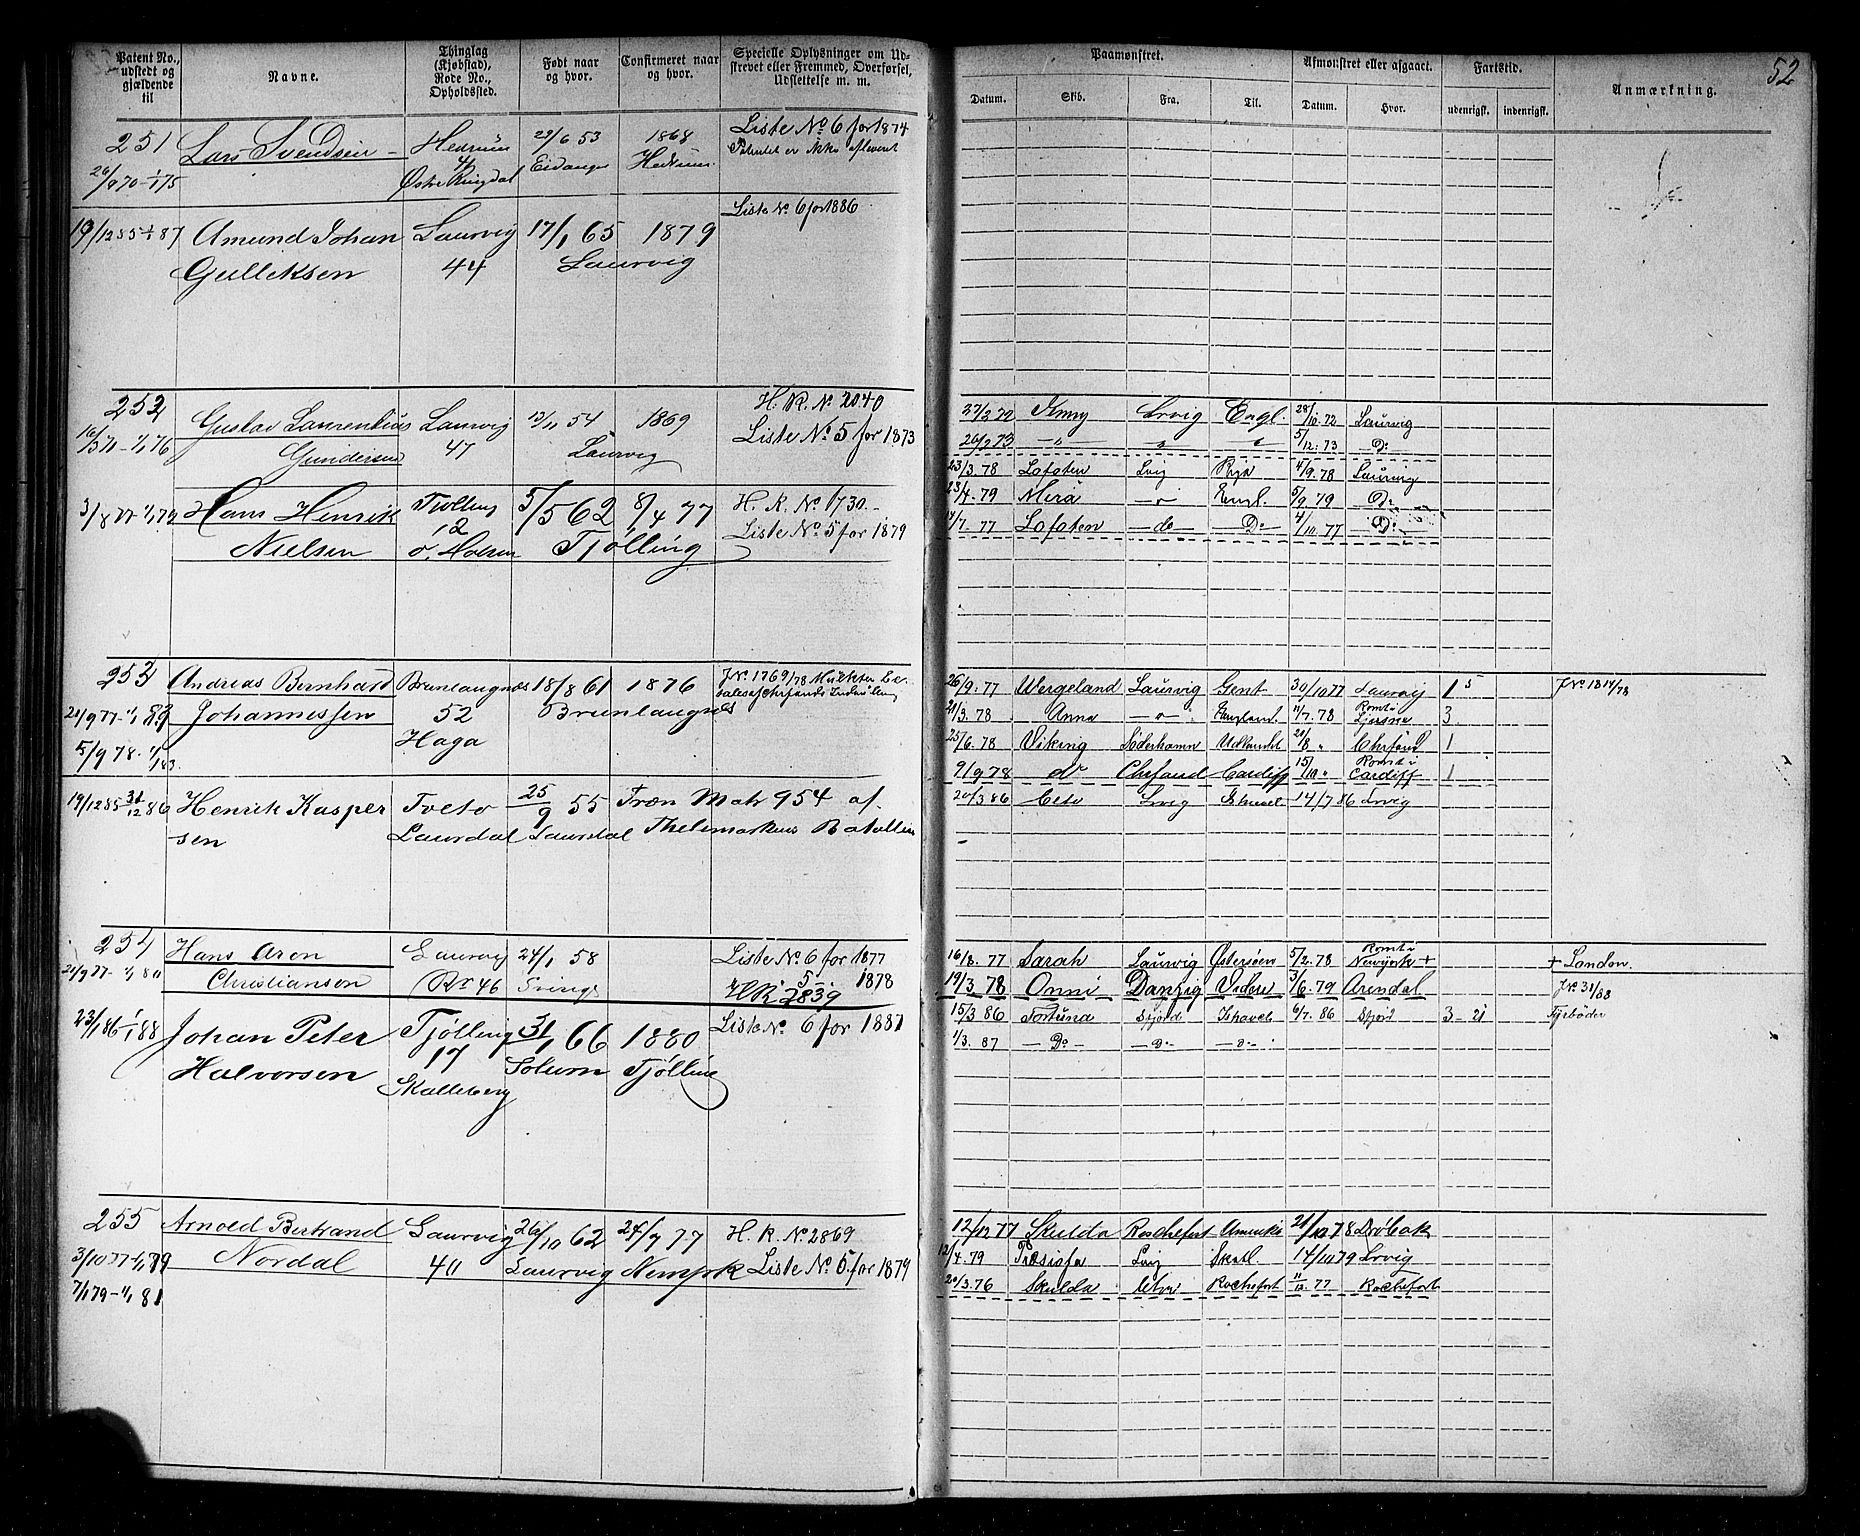 Patent No., udstedt og gjældende til
Navne.
Thinglag (Kjøbstad), Rode No., Opholdssted.
Født naar og hvor.
Confirmeret naar og hvor.
Specielle Oplysninger om Udskrevet eller Fremmed, Overførsel, Udslettelse m. m.
Paamønstret.
Datum. Skib. Fra. Til.
Afmønstret eller afgaaet.
Datum. Hvor.
Fartstid.
udenrigsk. indenrigsk.
Anmærkning.
52
251 Lars Svendsen Hedrum 29/6 53 1868 Liste No 6 for 1874
Østre Ringdal Eidanger Hedrum Patentet er ikke afleveret
19/12 85 1/1 87 Amund Johan Laurvig 17/1 65 1879 Liste No 6 for 1886
Gulliksen 44 Laurvig
252 Gustav Laurentius Laurvig 12/11 54 1869 H. R. No 2040
Gundersen 47 Laurvig Liste No 5 for 1873
27/2 72 Lrvig Engl. 28/10.72 Laurvig
26/2 73 5/12.73 Do
23/3.78 Lofoten Lvig 4/9.78 Laurvig
23/4.79 Engl. 5/9 79 Do
7/7.77 Lofoten do Do 4/10.77 Do
Hans Henrik 5/5 62 8/4 77 H. R. No 1730
Nielsen 12 Tjølling Liste No 5 for 1879
253 Andreas Bernhard Brunlaugnæs 18/8 61 1876
Johannessen 52 Brunlaugnæs
5/9 78 1/1 83 Haga
26/9.77 Wergeland Laurvig Gent 30/10 77 Laurvig 1 5 JNo 1814/78
21/3.78 Anna England 11/7.78 Rømt i Ljusne 3
25/6.78 Viking Söderhamn Udlandet 21/8 " Chrsand 1
9/9 78 do Chrsand Cardiff 15/10 " Rømt i Cardiff 1
20/3 86 Ceto Lrvig 14/7 86 Lrvig
19/12 85 31/12 86 Henrik Kaspersen Tveto 25/9 55 Træn Matr 954 af
Laurdal Laurdal Thelemarkens Bataillon
254 Hans Aron Laurvig 24/1 58 Liste No 6 for 1877
21/9 77 1/1 80 Christiansen Ro 46 5 1878
HR 2839
16/8.77 Sarah Laurvig Østersøen 5/2.78 Rømt i Newyork + + London.
19/3 78 Onni Danzig Videre 3/6.79 Arendal JNo 31/88
15/3 86 Fortuna Sfjord Ishavet 6/7.86 Sfjord 3 - 21 Fyrbøder
1/3.87 Do Do
23/1 86 1/1 88 Johan Peter Tjølling 31/1 66 1880 Liste No 6 for 1887
Halvorsen 17 Solum Tjølling
Skalleberg
255 Arnold Bertrand Laurvig 26/10 62 H. R. No 2869
3/10 77 1/1 79 Nordal 40 Laurvig Liste No 5 for 1879
7/1 79 - 1/1 81
12/12 77 Skulda Rochefort Amerika 21/10 78 Drøbak
12/4.79 Lvig 14/10 79 Lrvig
20/3.76 Skulda Rochefort 11/12.77 Rochefort